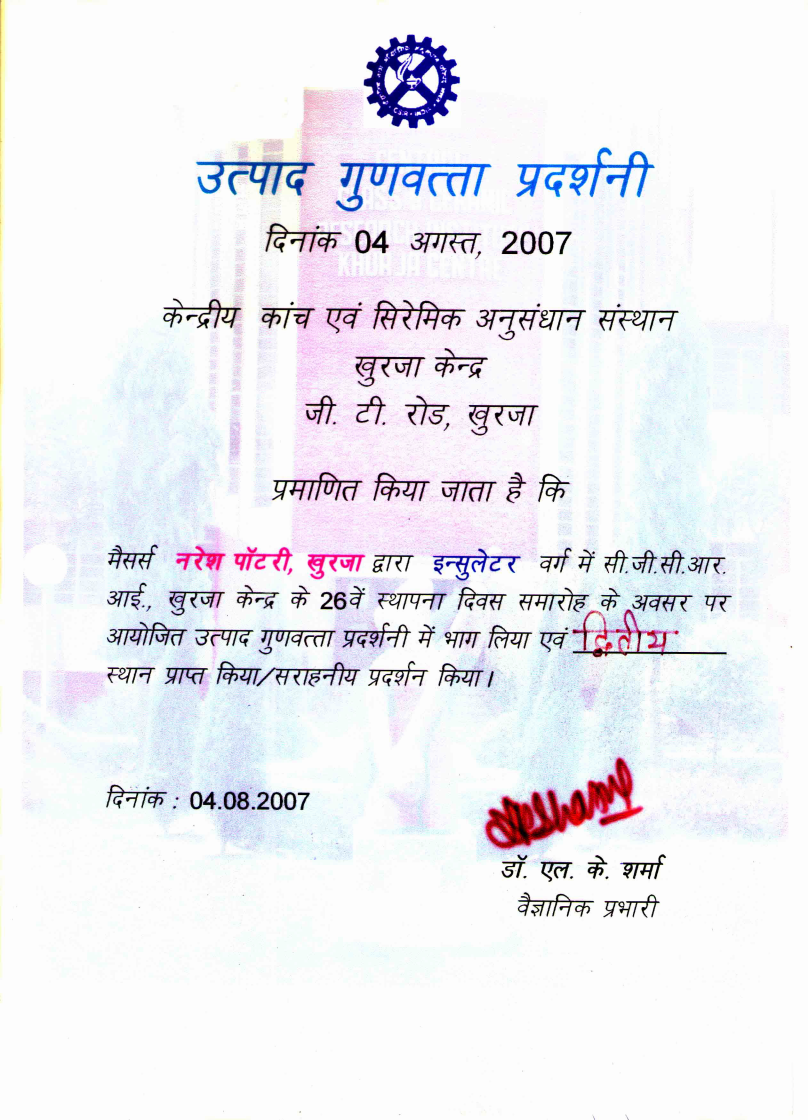 उत्पाद गुणवत्ता प्रदर्शनी
दिनांक 04 अगस्त, 2007
केन्द्रीय कांच एवं सिरेमिक अनुसंधान संस्थान
खुरजा केन्द्र
जी. टी. रोड, खुरजा
प्रमाणित किया जाता है कि
मैसर्स नरेश पॉटरी, खुरजा द्वारा इन्सुलेटर वर्ग में सी.जी.सी.आर.
आई., खुरजा केन्द्र के 26वें स्थापना दिवस समारोह के अवसर पर
आयोजित उत्पाद गुणवत्ता प्रदर्शनी में भाग लिया एवं द्वितीय
स्थान प्राप्त किया/सराहनीय प्रदर्शन किया।
दिनांक : 04.08.2007
डॉ. एल. के. शर्मा
वैज्ञानिक प्रभारी